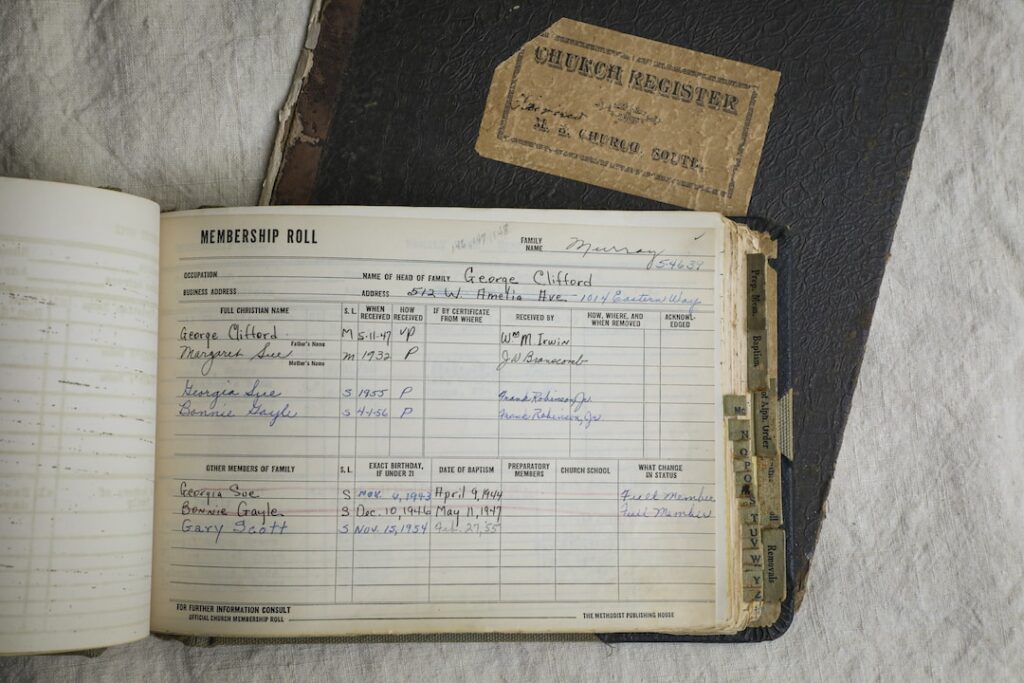 CHURCH REGISTER
M. E. CHURCH, SOUTH.
MEMBERSHIP ROLL
FAMILY NAME Murray
54639
OCCUPATION NAME OF HEAD OF FAMILY George Clifford
BUSINESS ADDRESS ADDRESS 512 W. Amelia Ave. 1014 Eastern Way
FULL CHRISTIAN NAME S. L. WHEN RECEIVED HOW RECEIVED IF BY CERTIFICATE FROM WHERE RECEIVED BY HOW, WHERE, AND WHEN REMOVED ACKNOWL-EDGED
George Clifford M 5-11-47 VP Wm M Irwin
Father's Name
Margaret Sue M 1932 P J.N Branscomb
Mother's Name
Georgia Sue S 1955 P Frank Robinson, Jr.
Bonnie Gayle S 4-1-56 P Frank Robinson, Jr.
OTHER MEMBERS OF FAMILY S. L. EXACT BIRTHDAY, IF UNDER 21 DATE OF BAPTISM PREPARATORY MEMBERS CHURCH SCHOOL WHAT CHANGE IN STATUS
Georgia Sue S Nov. 4, 1943 April 9, 1944 Full Member
Bonnie Gayle S Dec. 10, 1946 May 11, 1947 Full Member
Gary Scott S Nov. 15, 1954 Feb. 27, 55
FOR FURTHER INFORMATION CONSULT
OFFICIAL CHURCH MEMBERSHIP ROLL THE METHODIST PUBLISHING HOUSE
Prep. Mem.
Baptism
Alph. Order
Removals
Mc
N
O
P
Q
S
T
U
V
W
Y
Z